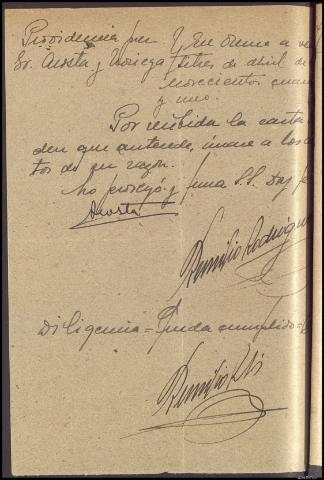 Providencia por
Sr. Acosta y Noriega
Y En Orense a ve
titres de abril de
novecientos cuare
y uno.
Por recibida la carta
den que antecede, únase a los a
tos de su razón.
Lo proveyó y firma S.S. Doy fe
Acosta
Remilio Rodrigue
Diligencia = Queda cumplido
Remilio